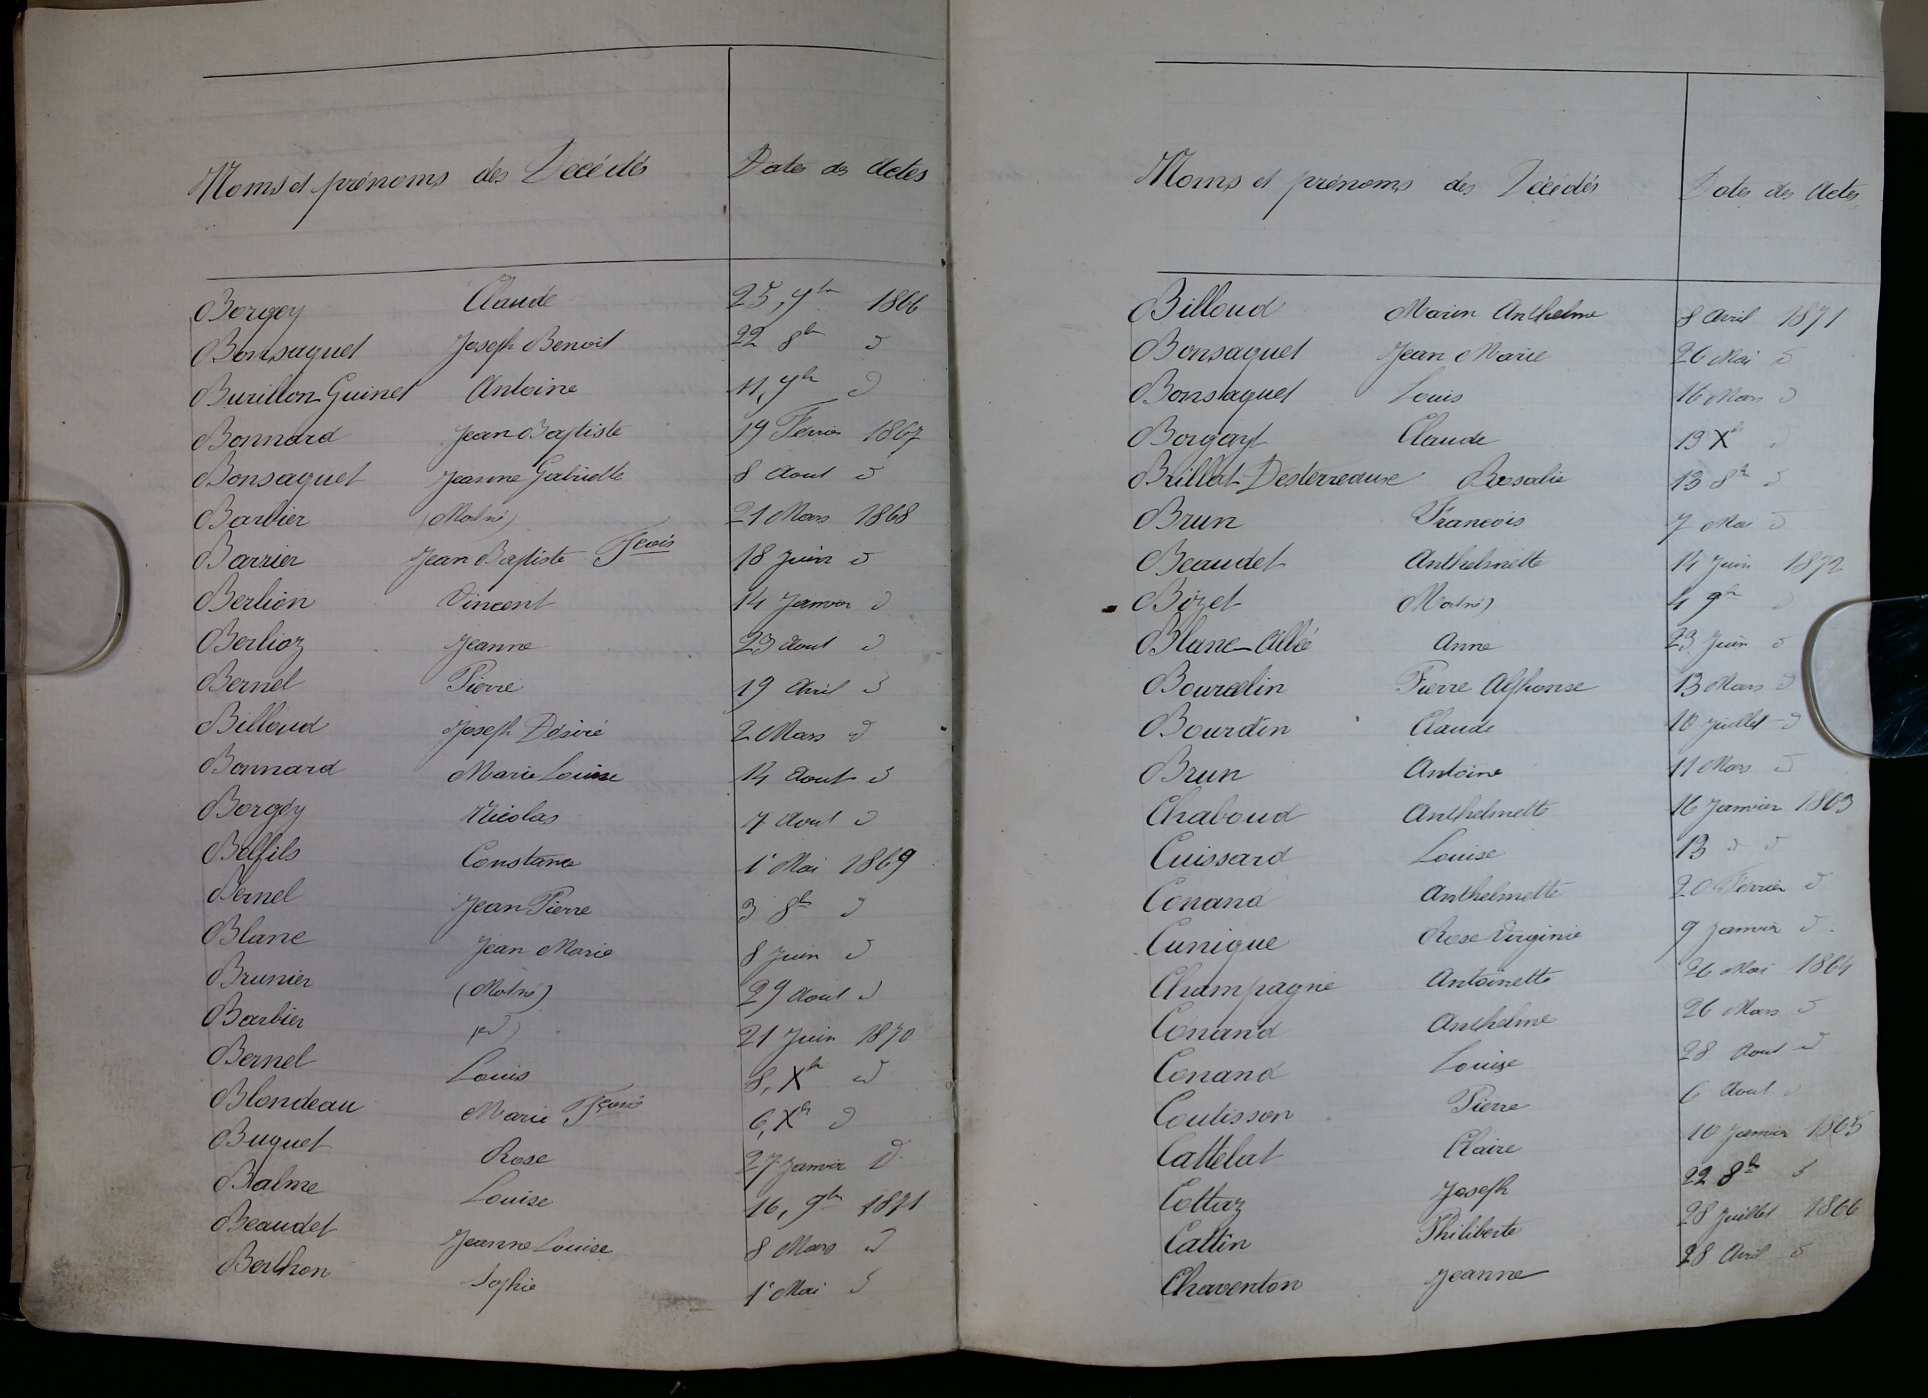 Noms et prénoms des Décédés Dates des Actes
Borgey Claude 25, 7bre 1866
Bonsaquet Joseph Benoit 22 8bre d
Burillon-Guinet Antoine 11, 7bre d
Bonnard Jean Baptiste 19 Fevrier 1867
Bonsaquet Jeanne Gabrielle 8 Aout d
Barbier (Mort né) 21 Mars 1868
Barrier Jean Baptiste Fcois 18 Juin d
Berlion Vincent 14 Janvier d
Berlioz Jeanne 23 Aout d
Bernel Pierre 19 Avril d
Billoud Joseph Désiré 2 Mars d
Bonnard Marie Louise 14 Aout d
Borgey Nicolas 7 Aout d
Belfils Constance 1er Mai 1869
Bernel Jean Pierre 3 8bre d
Blanc Jean Marie 8 Juin d
Brunier (Mort né) 29 Aout d
Barbier (d) 21 Juin 1870
Bernel Louis 8, Xbre d
Blondeau Marie Fçoise 6, Xbre d
Buquet Rose 27 Janvier d
Balme Louise 16, 9bre 1871
Beaudet Jeanne Louise 8 Mars d
Berthon Sophie 1er Mai d
Noms et prénoms des Décédés Dates des Actes
Billoud Marin Anthelme 8 Avril 1871
Bonsaquet Jean Marie 26 Mai d
Bonsaquet Louis 16 Mars d
Borgayt Claude 19 Xbre d
Brillat-Desterreaux Rosalie 13 8bre d
Brun Francois 7 Mai d
Beaudet Anthelmette 14 Juin 1872
Bizet (Mort né) 4 9bre d
Blanc-Aillé Anne 23 Juin d
Bourdin Pierre Alphonse 13 Mars d
Bourdin Claude 10 Juillet d
Brun Antoine 11 Mars d
Chaboud Anthelmette 16 Janvier 1863
Cuissard Louise 13 d d
Conand Anthelmette 20 Février d
Cunique Rose Virginie 9 Janvier d
Champagne Antoinette 26 Mai 1864
Conand Anthelme 26 Mars d
Conand Louise 28 Aout d
Coutisson Pierre 6 Aout d
Cattelat Claire 10 Janvier 1865
Cottaz Joseph 22 8bre d
Cattin Philiberte 28 Juillet 1866
Chaventon Jeanne 28 Avril d